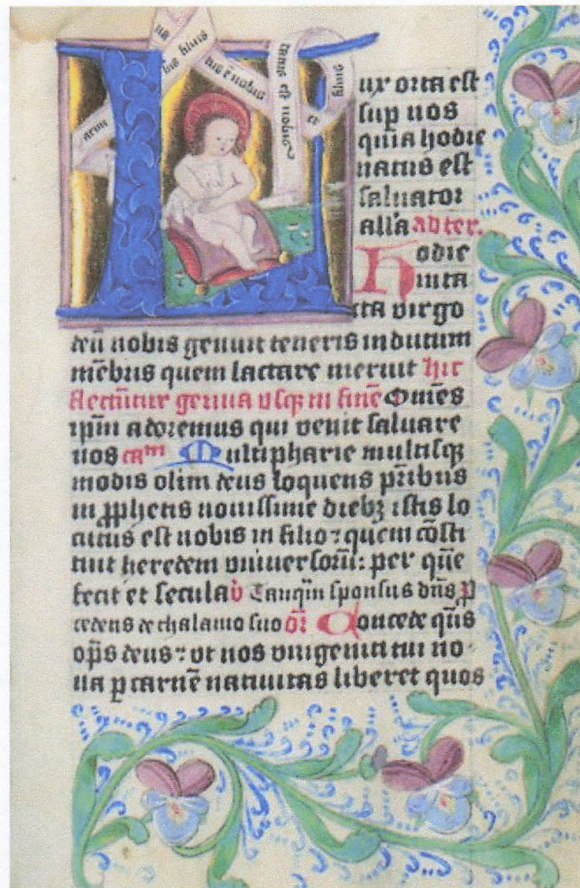 uer
nis filius
tus est nobis
datus est nobis
et
filius
Lux orta est
sup nos
quia hodie
natus est
saluator
alla ad ter.
Hodie
inta
cta virgo
deū nobis genuit teneris indutum
mēbris quem lactare meruit hic
flectūtur genua vsqꝫ in finē Omēs
ipm̄ adoremus qui venit saluare
nos cam Multipharie multisqꝫ
modis olim deus loquens pr̄ibus
in ꝓphetis nouissime diebꝫ istis lo
cutus est nobis in filio: quem cōsti
tuit heredem vniuersorū: per quē
fecit et secula v̄ Tanqm̄ sponsus dn̄s ꝓ
cedens de thalamo suo or̄ Concede qs̄
ops̄ deus: vt nos vnigeniti tui no
ua ꝑ carnē natiuitas liberet quos